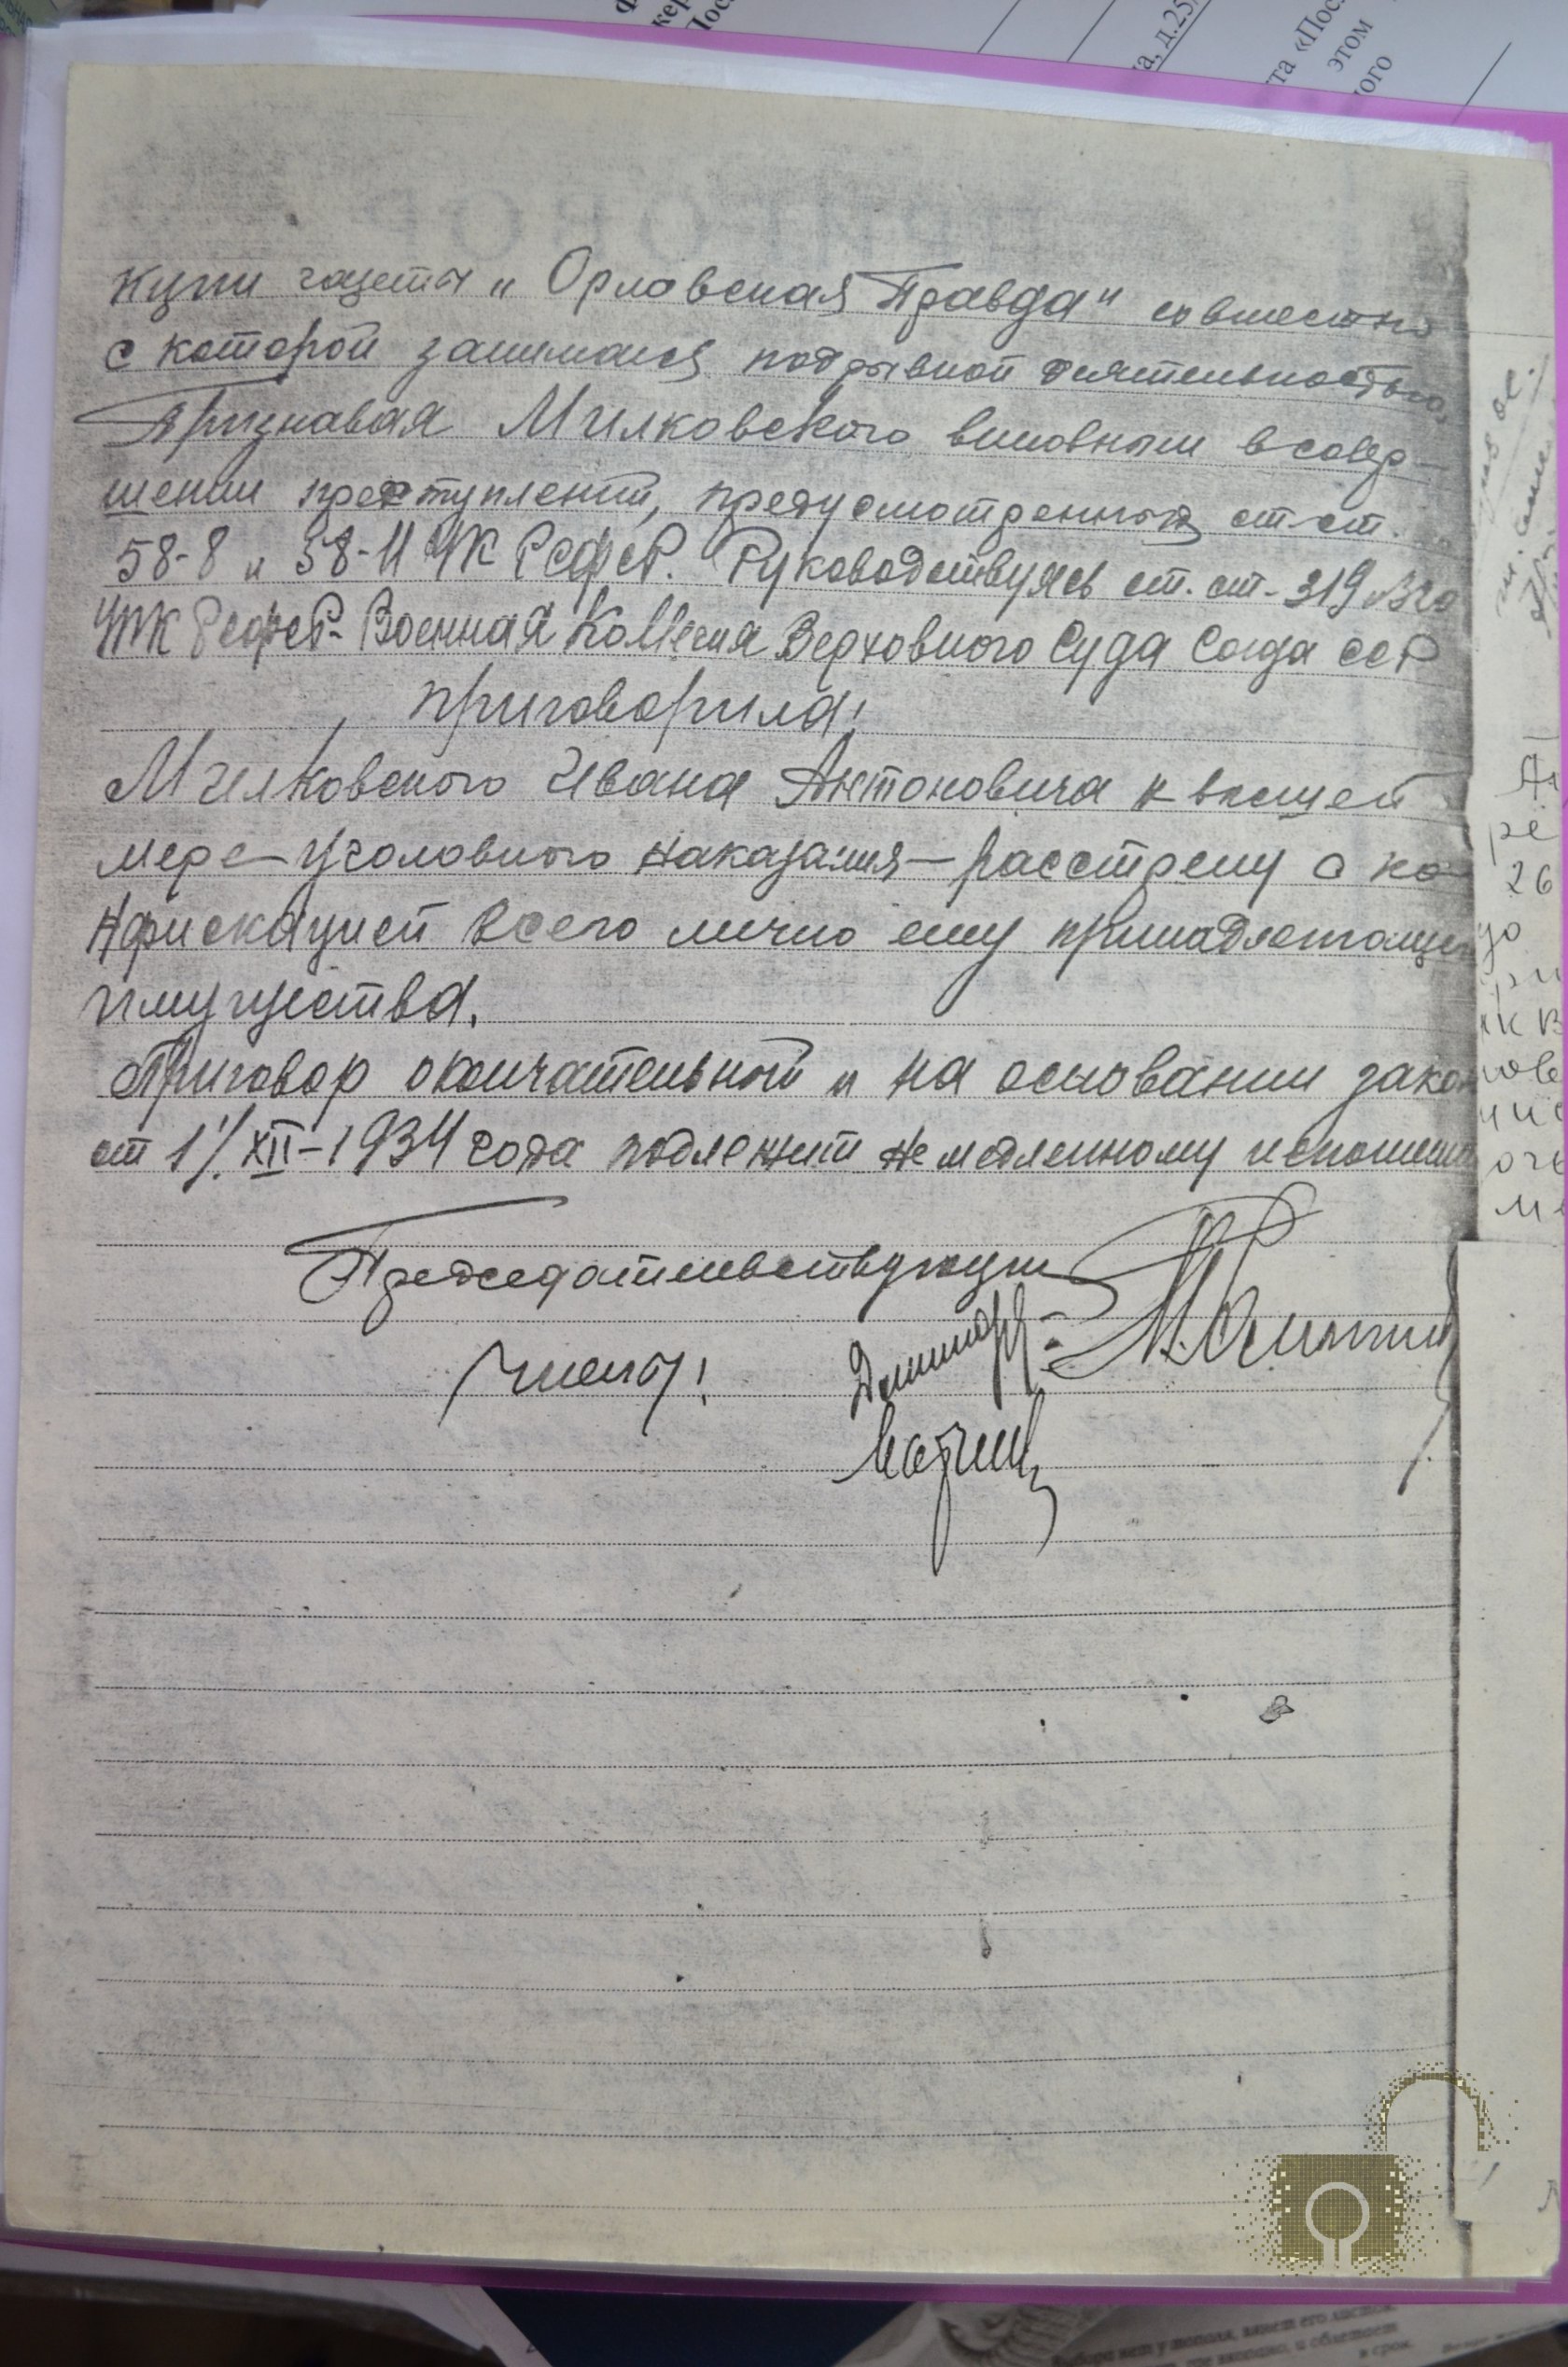 Ф
кер
Пос
а, д.25
та «Пос
этом
ного
ПРИГОВОР
кции газеты „Орловская Правда" совместно
с которой занимался подрывной деятельностью.
Признавая Милковского виновным в совер-
шении преступлений, предусмотренных ст-ст.
58-8 и 58-11 УК РСФСР. Руководствуясь ст. ст. 319 и 320
УПК РСФСР. Военная Коллегия Верховного Суда Союза ССР
приговорила:
Милковского Ивана Антоновича к высшей
мере уголовного наказания — расстрелу с ко-
нфискацией всего лично ему принадлежащего
имущества.
Приговор окончательный и на основании закон
от 1/XII-1934 года подлежит немедленному исполнению
Председательствующий
Члены:
ре
26
до
ри
кв
нов
чис
оче